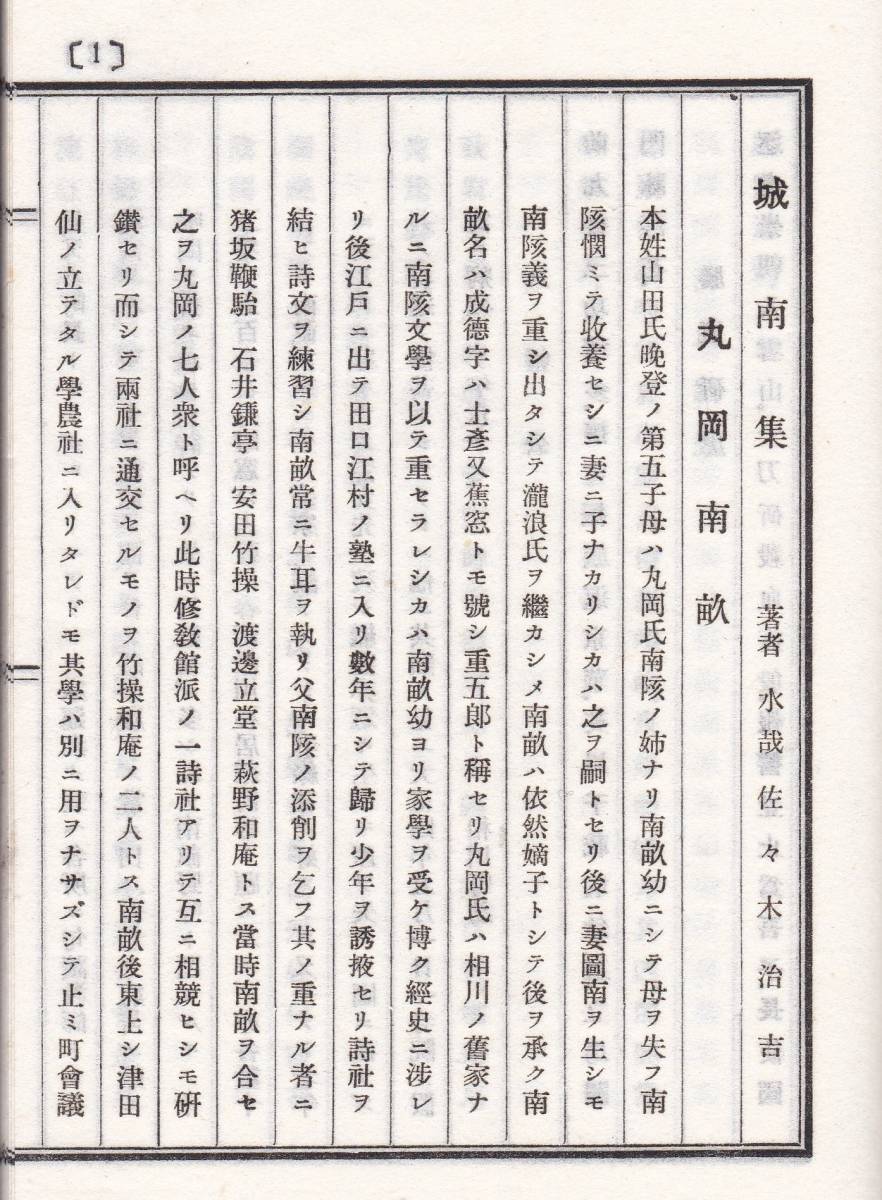 〔1〕
城南集 著者 水哉 佐々木治吉
丸岡南畝
本姓山田氏晩登ノ第五子母ハ丸岡氏南陔ノ姉ナリ南畝幼ニシテ母ヲ失フ南
陔憫ミテ收養セシニ妻ニ子ナカリシカハ之ヲ嗣トセリ後ニ妻圖南ヲ生シモ
南陔義ヲ重シ出タシテ瀧浪氏ヲ繼カシメ南畝ハ依然嫡子トシテ後ヲ承ク南
畝名ハ成德字ハ士彥又蕉窓トモ號シ重五郎ト稱セリ丸岡氏ハ相川ノ舊家ナ
ルニ南陔文學ヲ以テ重セラレシカハ南畝幼ヨリ家學ヲ受ケ博ク經史ニ涉レ
リ後江戶ニ出テ田口江村ノ塾ニ入リ數年ニシテ歸リ少年ヲ誘掖セリ詩社ヲ
結ヒ詩文ヲ練習シ南畝常ニ牛耳ヲ執リ父南陔ノ添削ヲ乞フ其ノ重ナル者ニ
猪坂鞭駘 石井鎌亭 安田竹操 渡邊立堂 萩野和庵トス當時南畝ヲ合セ
之ヲ丸岡ノ七人衆ト呼ヘリ此時修敎館派ノ一詩社アリテ互ニ相競ヒシモ硏
鑚セリ而シテ兩社ニ通交セルモノヲ竹操和庵ノ二人トス南畝後東上シ津田
仙ノ立テタル學農社ニ入リタレドモ共學ハ別ニ用ヲナサズシテ止ミ町會議